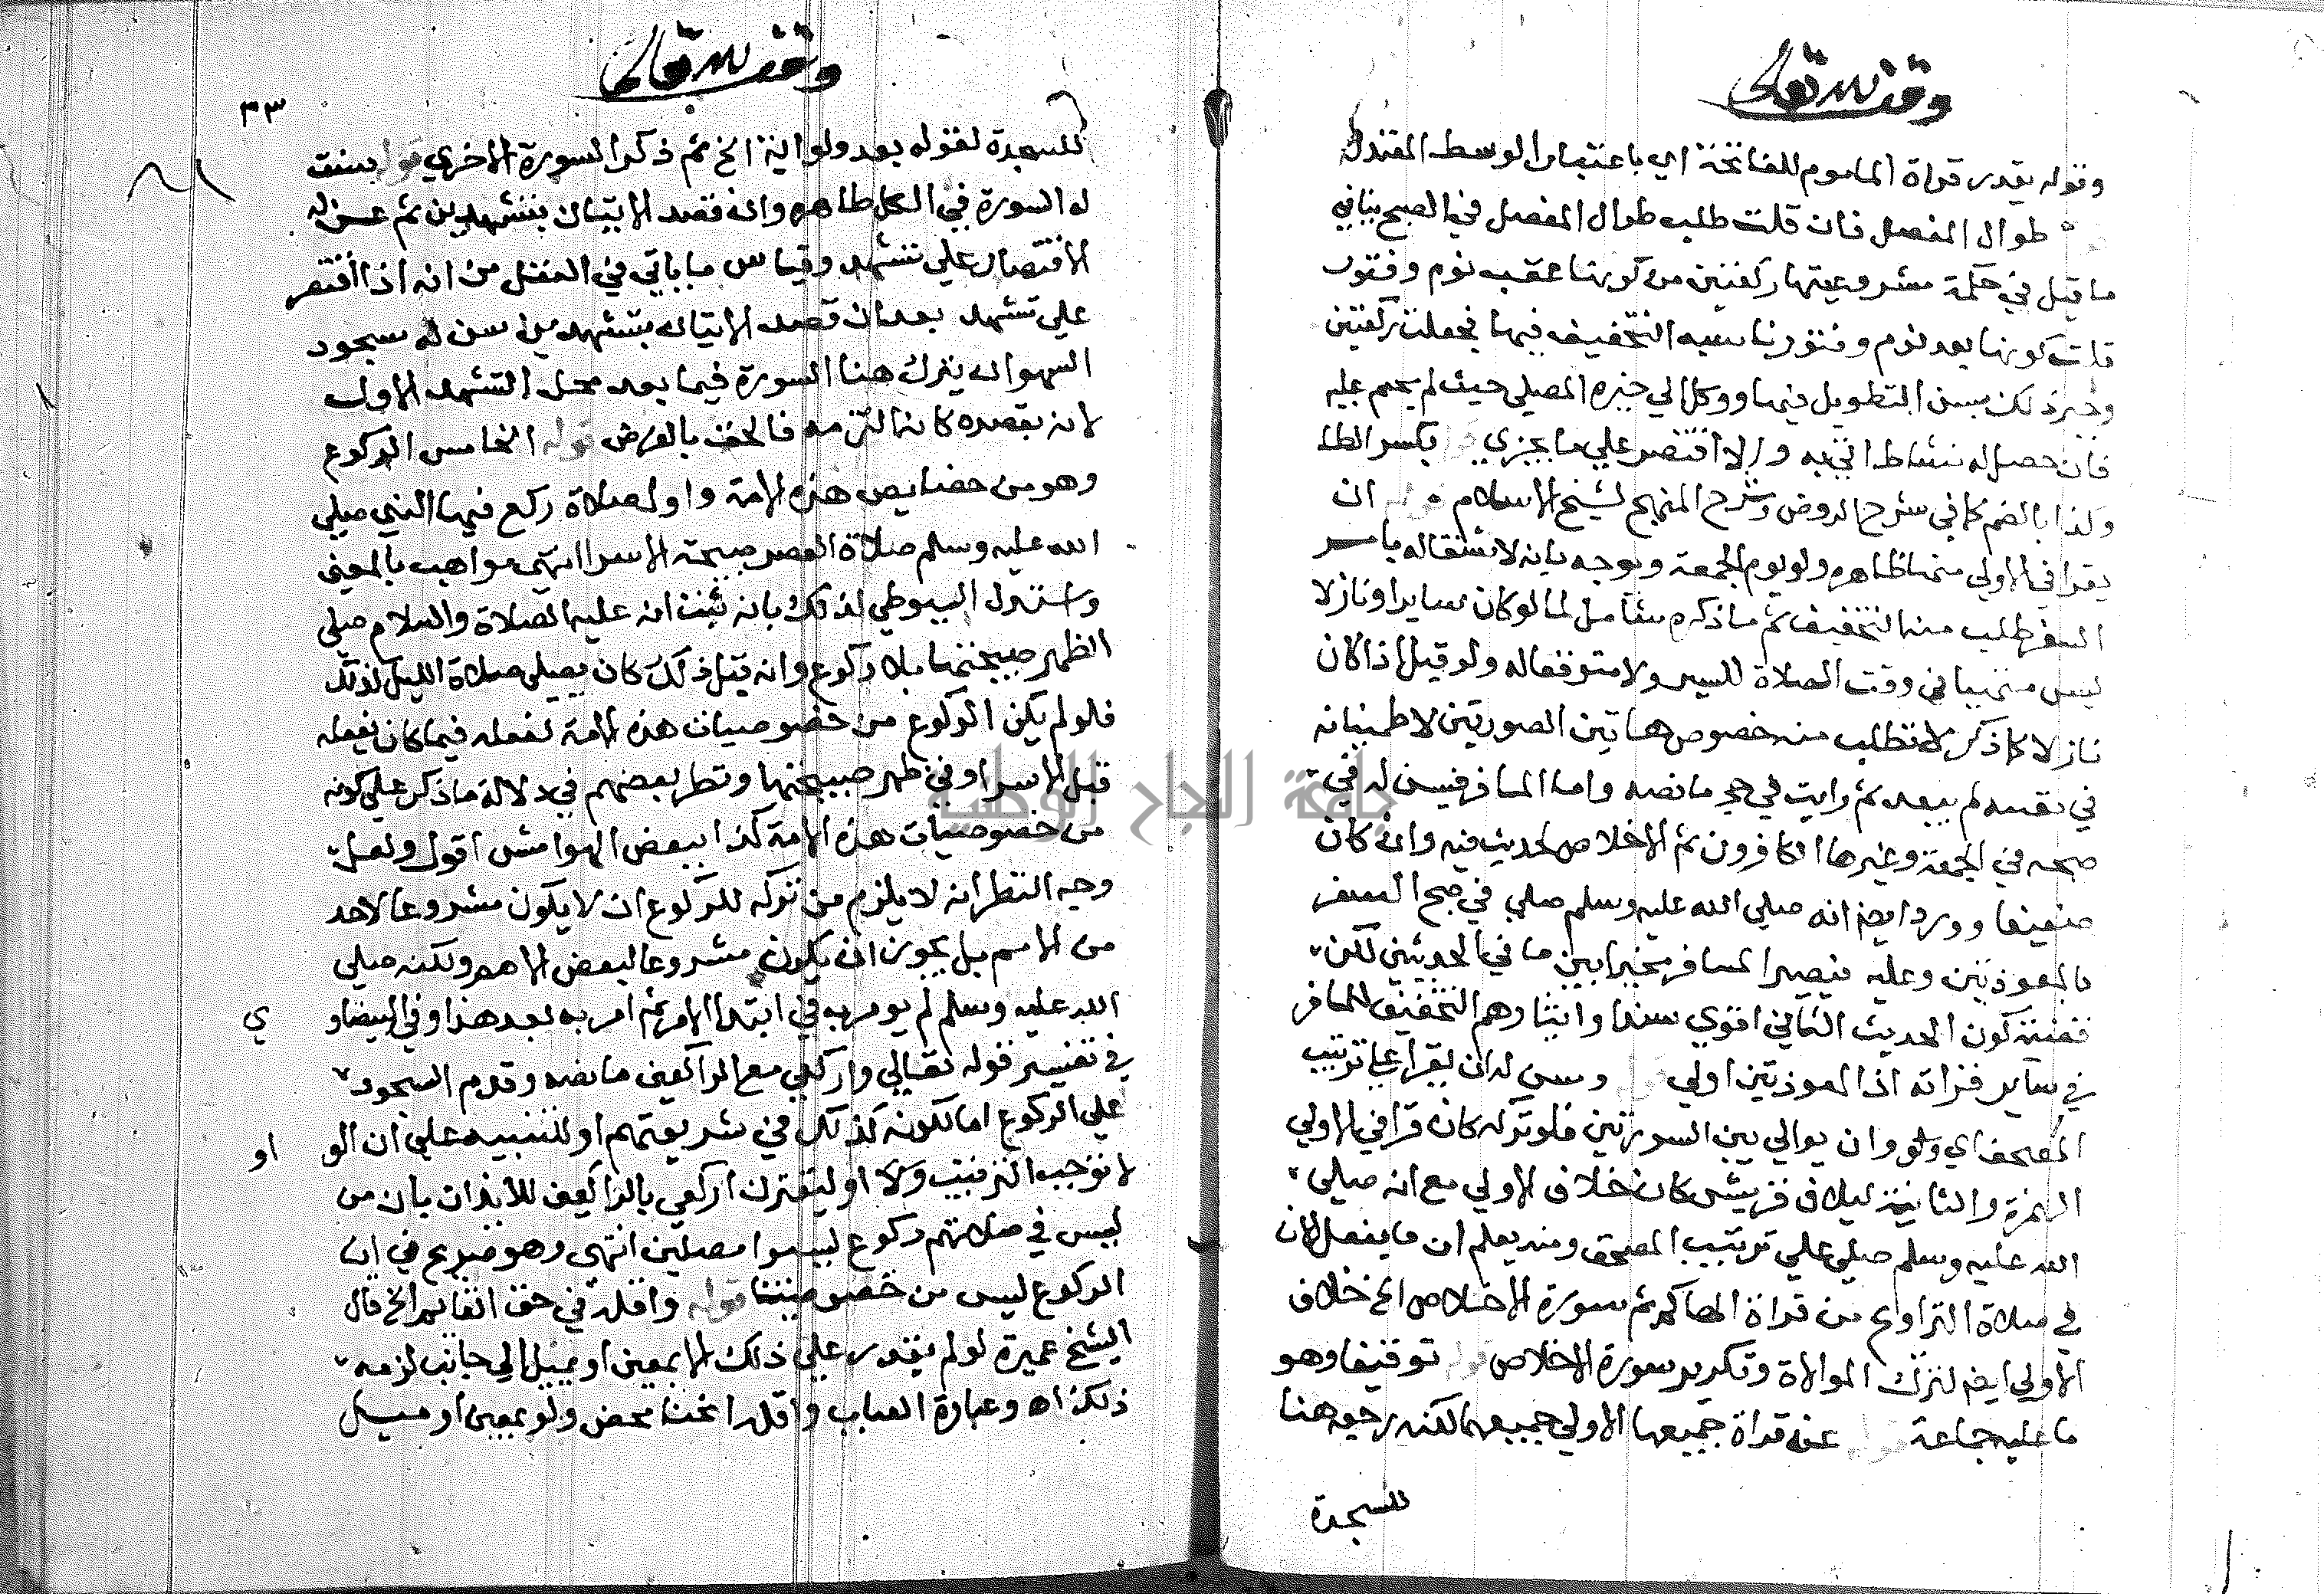 وقف لله تعالى
وقوله بقدر قراة الماموم للفاتحة اي باعتبار الوسط المعتدل
طوال المفصل فان قلت طلب طوال المفصل في الصبح ينافي
ما قيل في حكمة مشروعيتها ركعتين من كونها عقب نوم وفتور
قلت كونها بعد نوم وفتور ناسبه التخفيف فيها فجعلت ركعتين
وجبر ذلك بسن التطويل فيها ووكل الي خيره المصلي حيث لم يحتم عليه
فان حصل له نشاط اتي به والا اقتصر علي ما يجزي بكسر الطا
وكذا بالضم كما في شرح الروض وشرح المنهج لشيخ الاسلام قوله ان
يقرا في الاولي منها ظاهره ولو يوم الجمعة ويوجه بانه لاشتغاله بامر
السفر طلب منه التخفيف ثم ما ذكره شامل لما لو كان سايرا ونازلا
ليس متهيبا في وقت الصلاة للسير ولا متوقعا له ولو قيل اذا كان
نازلا كما ذكر لا تطلب منه خصوص هاتين الصورتين لاطمينانه
في نفسه لم يبعد ثم رايت في حج ما نصه واما المسافر فيسن له في
صبحه في الجمعة وغيرها الكافرون ثم الاخلاص لحديث فيه وان كان
ضعيفا وورد ايضا انه صلي الله عليه وسلم صلي في صبح السفر
بالمعوذتين وعليه فيصير المسافر مخيرا بين ما في الحديثين لكن
قضية كون الحديث الثاني اقوي سندا وايثارهم التخفيف للمسافر
في ساير قراته ان المعوذتين اولي وسن له ان يقرا علي ترتيب
المصحف اي ولو وان يوالي بين السورتين فلو تركه كان قرا في الاولي
الهمزة والثانية ليلاف قريش كان خلاف الاولي مع انه صلي
الله عليه وسلم صلي علي ترتيب المصحف ومنه يعلم ان ما يفعل الان
في صلاة التراويح من قراة الهاكم ثم سورة الاخلاص الخ خلاف
الاولي ايضا لترك الموالاة وتكرير سورة الاخلاص توقيفا وهو
ما عليه جماعة عن قراة جميعها الاولي جميعهما لكنه رجوعه هنا
للسجدة
وقف لله تعالى
٣٣
للسجدة لقوله بعد ولو اية الخ ثم ذكر السورة الاخري قوله بسنت
له السورة في الكل ظاهره وان قصد الاتيان بتشهدين ثم عن له
الاقتصار علي تشهد وقياس ما ياتي في النفل من انه اذا اقتصر
علي تشهد بعد ان قصد الاتيان بتشهدين سن له سجود
السهو ان يترك هنا السورة فيما بعد محل التشهد الاول
لانه بقصده كانه التزمه فالحق بالفرض قوله الخامس الركوع
وهو من خصايص هذه الامة واول صلاة ركع فيها النبي صلي
الله عليه وسلم صلاة العصر صبيحة الاسرا انتهي مواهب بالمعني
واستدل السيوطي لذلك بانه ثبت انه عليه الصلاة والسلام صلي
الظهر صبيحتها بلا ركوع وانه قبل ذلك كان يصلي صلاة الليل كذلك
فلو لم يكن الركوع من خصوصيات هذه الامة لفعله فيما كان يفعله
قبل الاسرا وفي ظهر صبيحتها ونظر بعضهم في دلالة ما ذكر علي كونه
من خصوصيات هذه الامة كذا ببعض الهوامش اقول ولعل
وجه النظر انه لا يلزم من تركه للركوع ان لا يكون مشروعا لاحد
من الامم بل يجوز ان يكون مشروعا لبعض الامم ولكنه صلي
الله عليه وسلم لم يومر به في ابتدا الامر ثم امر به بعد هذا وفي البيضاوي
في تفسير قوله تعالي واركعي مع الراكعين ما نصه وقدم السجود
علي الركوع اما لكونه كذلك في شريعتهم او للتنبيه علي ان الواو
لا توجب الترتيب ولا او ليقترن اركعي بالراكعين للايذان بان من
ليس في صلاتهم ركوع ليسوا مصلين انتهي وهو صريح في ان
الركوع ليس من خصوصيتنا قوله واقله في حق القايم الخ قال
الشيخ عميرة لو لم يقدر علي ذلك الا بمعين او بميل الي جانب لزمه
ذلك اه وعبارة العباب واقله انحنا محض ولو بمعين او ميل